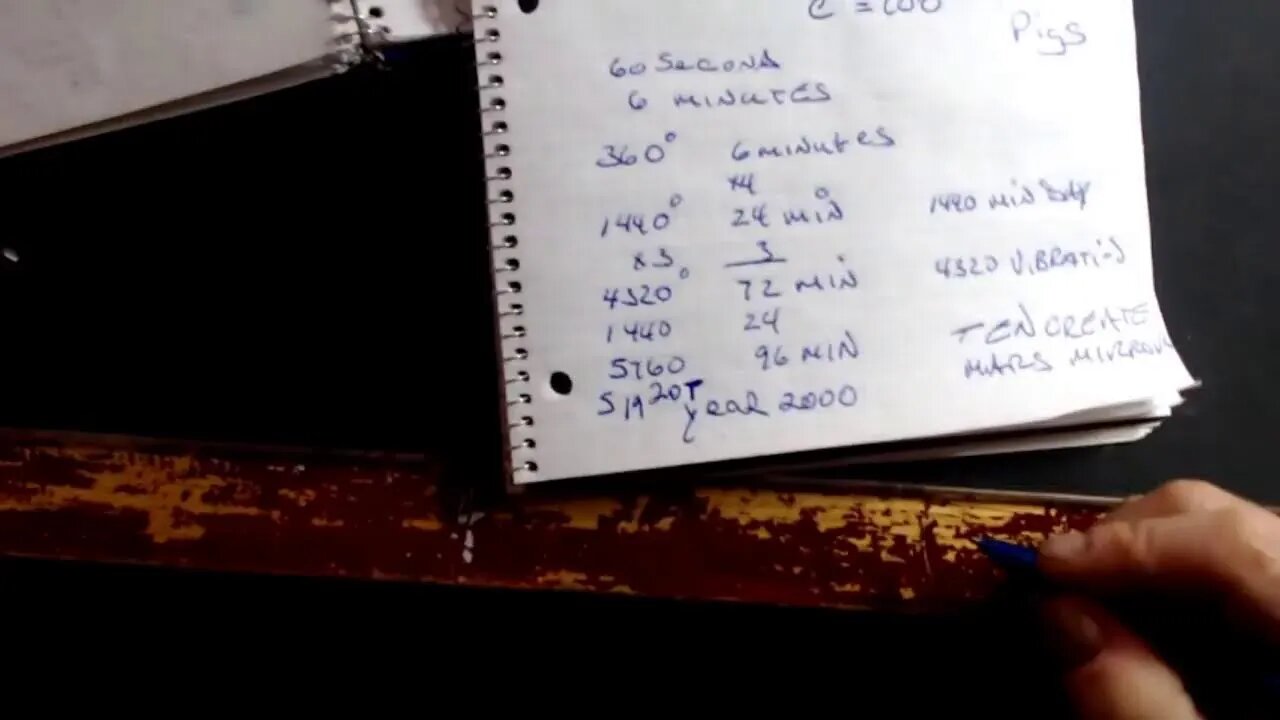 C = 100
Pigs
60 Second
6 MINUTES
360° 6 minutes
x4
1440° 24 min 1440 min Day
x3 3
4320° 72 min 4320 VIBRATI
1440 24 TEN CREATE
5760 96 MIN MARS MIRROR
year 2000